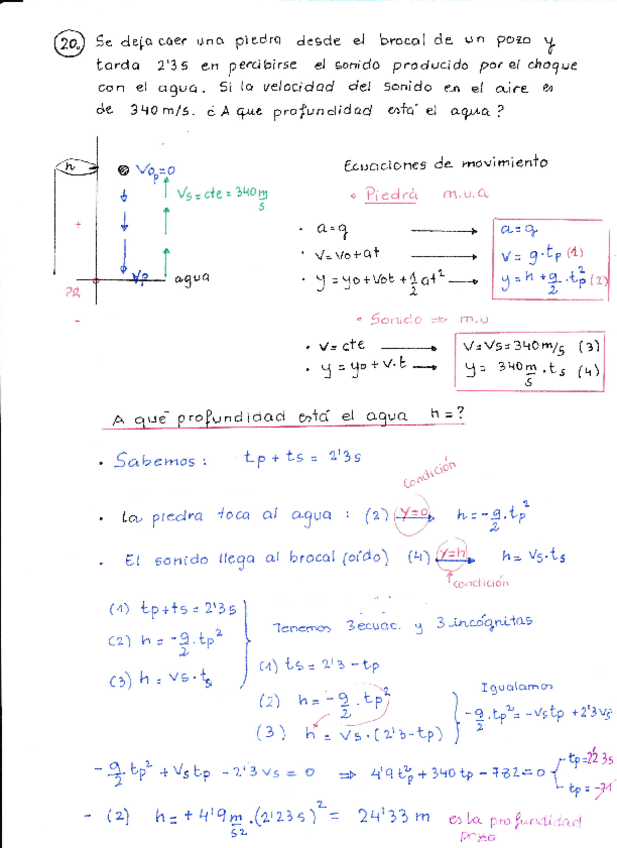 20. Se deja caer una piedra desde el brocal de un pozo y
tarda 2'3s en percibirse el sonido producido por el choque
con el agua. Si la velocidad del sonido en el aire es
de 340 m/s. ¿A que profundidad está el agua?
h Vop=0
Vs=cte=340 m/s
+
Vp agua
PR
-
Ecuaciones de movimiento
• Piedra m.u.a
• a=g → a=g
• v=vo+at → v=g·tp (1)
• y=yo+vot+1/2 at² → y=h+g/2·tp² (2)
• Sonido ⇒ m.u
• v=cte → v=vs=340m/s (3)
• y=yo+v·t → y= 340 m/s · ts (4)
A qué profundidad está el agua h=?
• Sabemos: tp+ts=2'3s
condición
• La piedra toca al agua: (2) y=0 → h=-g/2·tp²
• El sonido llega al brocal (oído) (4) y=h → h=vs·ts
condición
(1) tp+ts=2'3s
(2) h=-g/2·tp²
(3) h=vs·ts
Tenemos 3ecuac. y 3 incógnitas
(1) ts=2'3-tp
(2) h=-g/2·tp²
(3) h=vs·(2'3-tp)
Igualamos
-g/2·tp²=-vstp+2'3vs
-g/2·tp²+vstp-2'3vs=0 ⇒ 4'9tp²+340tp-782=0
tp=
tp=-71
- (2) h=+4'9 m/s²·(2'23s)²= 24'33 m es la profundidad
pozo